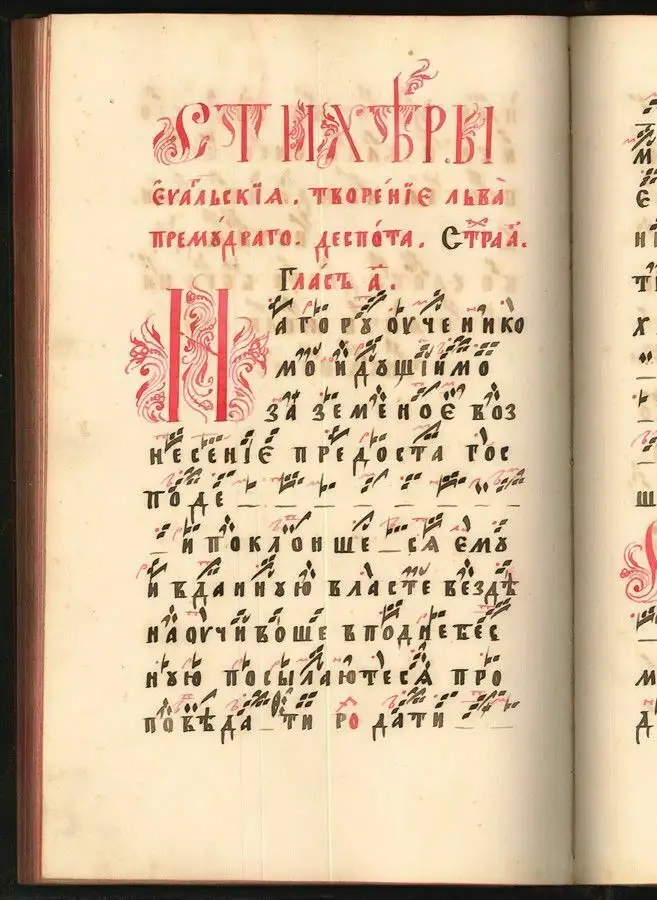 СТИХѢРЫ
Єѵа́льскїѧ. творе́нїє льва̀
премꙋ́драго. деспо́та. Стра́ а҃.
Гла́съ а҃.
НАГОРУ ОУЧЕНИКО
МО ИДУЩІИМО
ЗА ЗЕМЕНОЄ ВОЗ
НЕСЕНІЄ ПРЕДОСТА ГОС
ПОДЕ _ _ _ _ _ _ _
_ И ПОКЛОНШЕ _ СѦ ЄМУ
И ВДАННУЮ ВЛАСТЕ ВЕЗДѢ
НАОУЧИВОШЕ ВПОДНЕБЕС
НУЮ ПОСЫЛАЮТЕСѦ ПРО
ПОВѢДА _ ТИ РО ДАТИ _ _